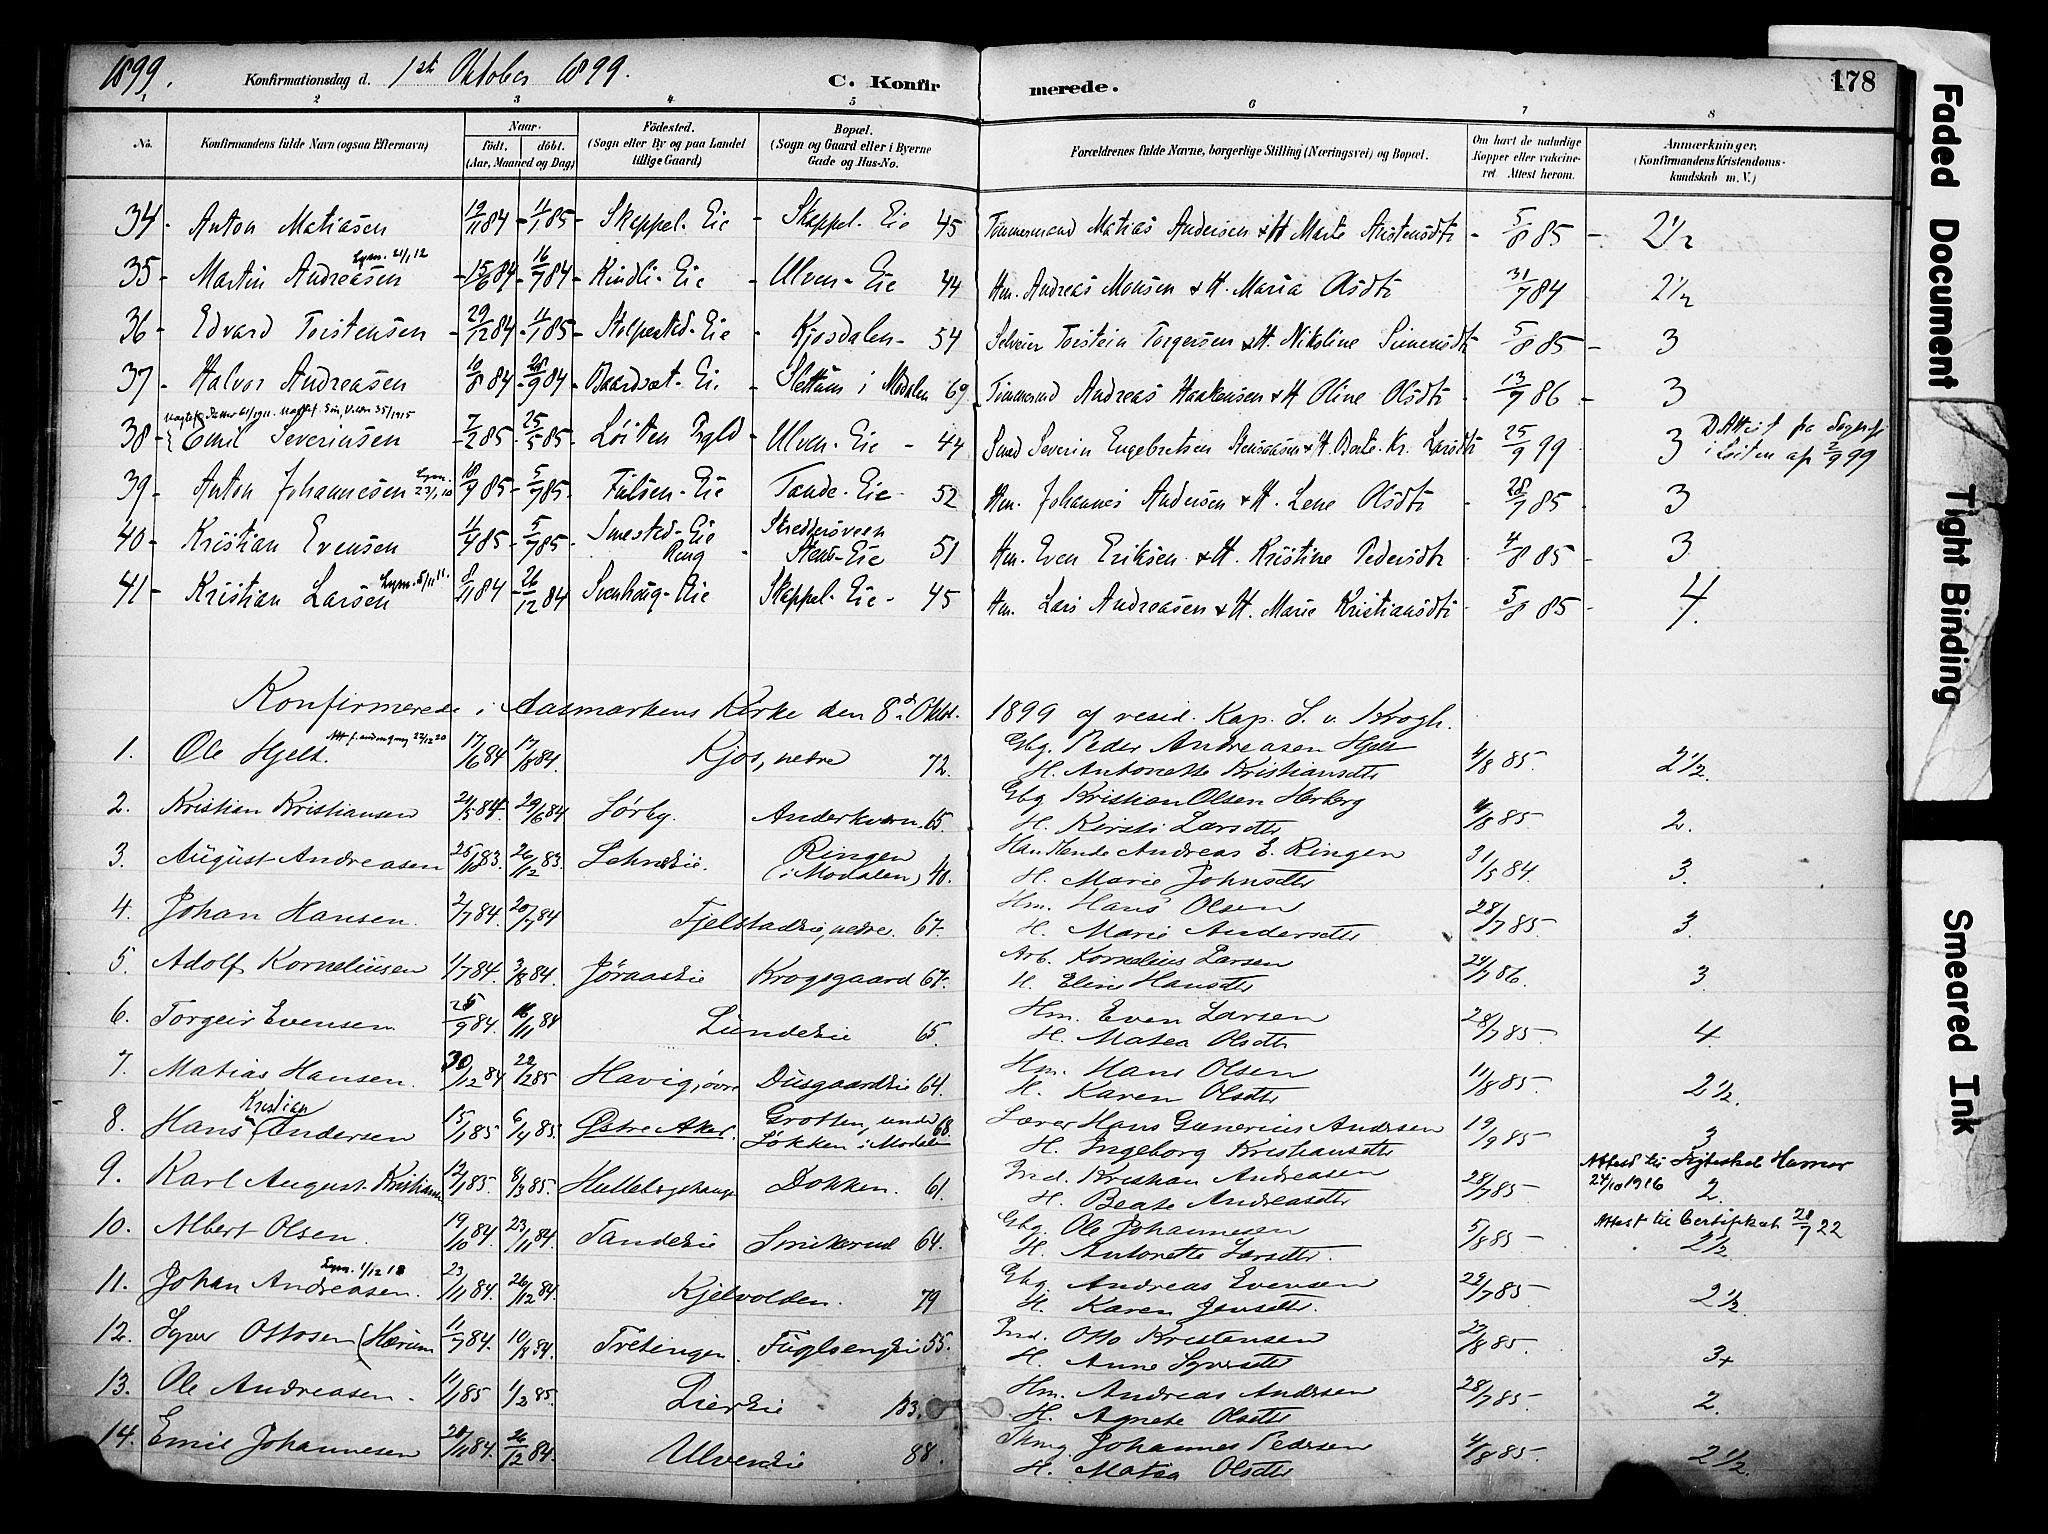 1899. Konfirmationsdag d. 1ste Oktober 1899. C. Konfirmerede. 178
1 2 3 4 5 6 7 8
No. Konfirmandens fulde Navn (ogsaa Efternavn) Naar. födt. döbt. (Aar, Maaned og Dag) Födested. (Sogn eller By og paa Landet tillige Gaard) Bopæl. (Sogn og Gaard eller i Byerne Gade og Hus-No. Forældrenes fulde Navne, borgerlige Stilling (Næringsvei) og Bopæl. Om havt de naturlige Kopper eller vakcineret. Attest herom. Anmærkninger. (Konfirmandens Kristendomskundskab m. V.)
34 - Anton Matiasen 19/11 84 - 11/1 85 - Skappel-Eie - Skappel-Eie 45 Tømmermand Matias Andersen & H. Marte Austensdtr - 5/8 85 - 2 1/2
35 - Martin Andreasen Lysn. 21/1 12 - 15/6 84 - 16/7 84 - Kindli-Eie - Ulven-Eie 44 Hm. Andreas Monsen & H. Maria Olsdtr 31/7 84 2 1/2
36 - Edvard Torstensen - 29/12 84 - 11/1 85 - Stolpestad-Eie - Kjosdalen - 54 Selveier Torstein Torgersen & H. Nikoline Simensdtr 5/8 85 - 3
37 - Halvor Andreasen 10/8 84 - 28/9 84 - Baardset-Eie - Slettum i Modalen 69 Tømmermand Andreas Haakensen & H. Oline Olsdtr - 13/7 86 - 3
38 - Emil Severinsen 7/2 85 - 25/5 85 - Løiten Prgld - Ulven-Eie - 44 Smed Severin Engebretsen Stensaasen & H. Berte Kr. Larsdtr 25/9 99 3 D. Attest fra Sognepr. i Løiten af 2/9 99
39 - Anton Johannesen Lysn. 23/1 10 18/9 85 - 5/7 85 - Fulsen-Eie Tande-Eie - 52 Hm. Johannes Andersen & H. Lene Olsdtr - 28/7 85 - 3
40 - Kristian Evensen 11/4 85 - 5/7 85 - Smestad-Eie Ring - Skreddersveen Stens-Eie 51 Hm. Even Eriksen & H. Kristine Pedersdtr 4/8 85 - 3
41 - Kristian Larsen Lysn. 5/11 11. 8/11 84 - 26/12 84 Svenhoug-Eie Skappel-Eie - 45 Hm. Lars Andreasen & H. Marie Kristiansdtr - 5/8 85 - 4.
Konfirmerede i Aasmarkens Kirke den 8de Oktbr. 1899 af resid. Kap. S. v. Krogh.
1. Ole Hjelt. 17/6 84 17/8 84. Kjos, nedre 72. Gbg. Peder Andreasen Hjelt
H. Antonette Kristiansdtr 4/8 85. 2 1/2.
2. Kristian Kristiansen 24/5 84. 29/6 84 Lørby. Anderkvern. 65. Gbg Kristian Olsen Herberg
H. Kirsti Larsdtr 4/8 85. 2.
3. August Andreasen 25/10 83. 26/12 83. Lehneeie. Ringen (i Modalen) 40. Handlende Andreas E. Ringen
H. Marie Johnsdtr 31/5 84. 3.
4. Johan Hansen. 2/7 84. 20/7 84 Fjelstadeie, nedre. 67. Hm. Hans Olsen
H. Marie Andersdtr 28/7 85. 3.
5. Adolf Korneliusen 11/7 84. 3/8 84. Jøraaseie Krogsgaard 67. Arb. Kornelius Larsen
H. Eline Hansdtr 24/7 86. 3.
6. Torgeir Evensen 25/9 84. 16/11 84 Lundeeie 65. Hm. Even Larsen
H. Matea Olsdtr 28/7 85. 4.
7. Matias Hansen. 30/12 84 22/2 85 Havig, øvre Dusgaardeie 64. Hm. Hans Olsen
H. Karen Olsdtr 11/8 85. 2 1/2.
8. Hans Kristian Andersen 15/1 85 6/4 85. Østre Aker. Grotten, under Løkken i Modalen 68. Lærer Hans Gunerius Andersen
H. Ingeborg Kristiansdtr 19/9 85. 3
9. Karl August Kristiansen 12/1 85. 8/3 85. Hellebergshaugen Dokken. 61. Ind. Kristian Andreasen
H. Beate Andreasdtr 28/7 85. Attest til Hamar 24/10 1916 2.
10. Albert Olsen. 19/10 84. 23/11 84. Tandeeie Smikerud 64. Gbg. Ole Johannesen
H. Antonette Larsdtr. 5/8 85. Attest til Certifikat 28/7 22 2 1/2
11. Johan Andreasen. Lysn. 1/12 18 23/11 84. 26/12 84. Kjelvolden. 79 Gbg. Andreas Evensen
H. Karen Jensdtr. 29/7 85. 2 1/2.
12. Syver Ottosen (Hærum 11/7 84. 10/8 84. Fretingen. Fuglsengeie 55. Ind. Otto Kristensen
H. Anne Syversdtr 23/8 85. 3+
13. Ole Andreasen. 11/1 85 1/2 85. Liereie 83. Hm. Andreas Andersen
H. Agnete Olsdtr 28/7 85. 2.
14. Emil Johannesen 28/11 84. 26/12 84. Ulveneie 88. Johannes Pedersen
H. Matea Olsdtr 4/8 85. 2 1/2.
Faded Document
Tight Binding
Smeared Ink